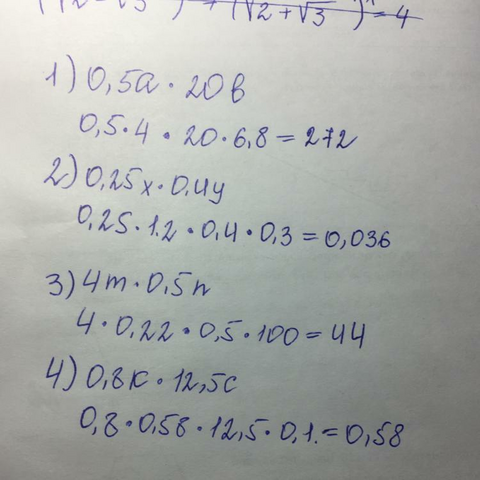 (√2 - √3 ) + (√2 + √3 )ⁿ = 4
1) 0,5a · 20в
0,5 · 4 · 20 · 6,8 = 272
2) 0,25x · 0,4y
0,25 · 1.2 · 0,4 · 0,3 = 0,036
3) 4m · 0,5n
4 · 0,22 · 0,5 · 100 = 44
4) 0,8к · 12,5с
0,8 · 0,58 · 12,5 · 0,1. = 0,58